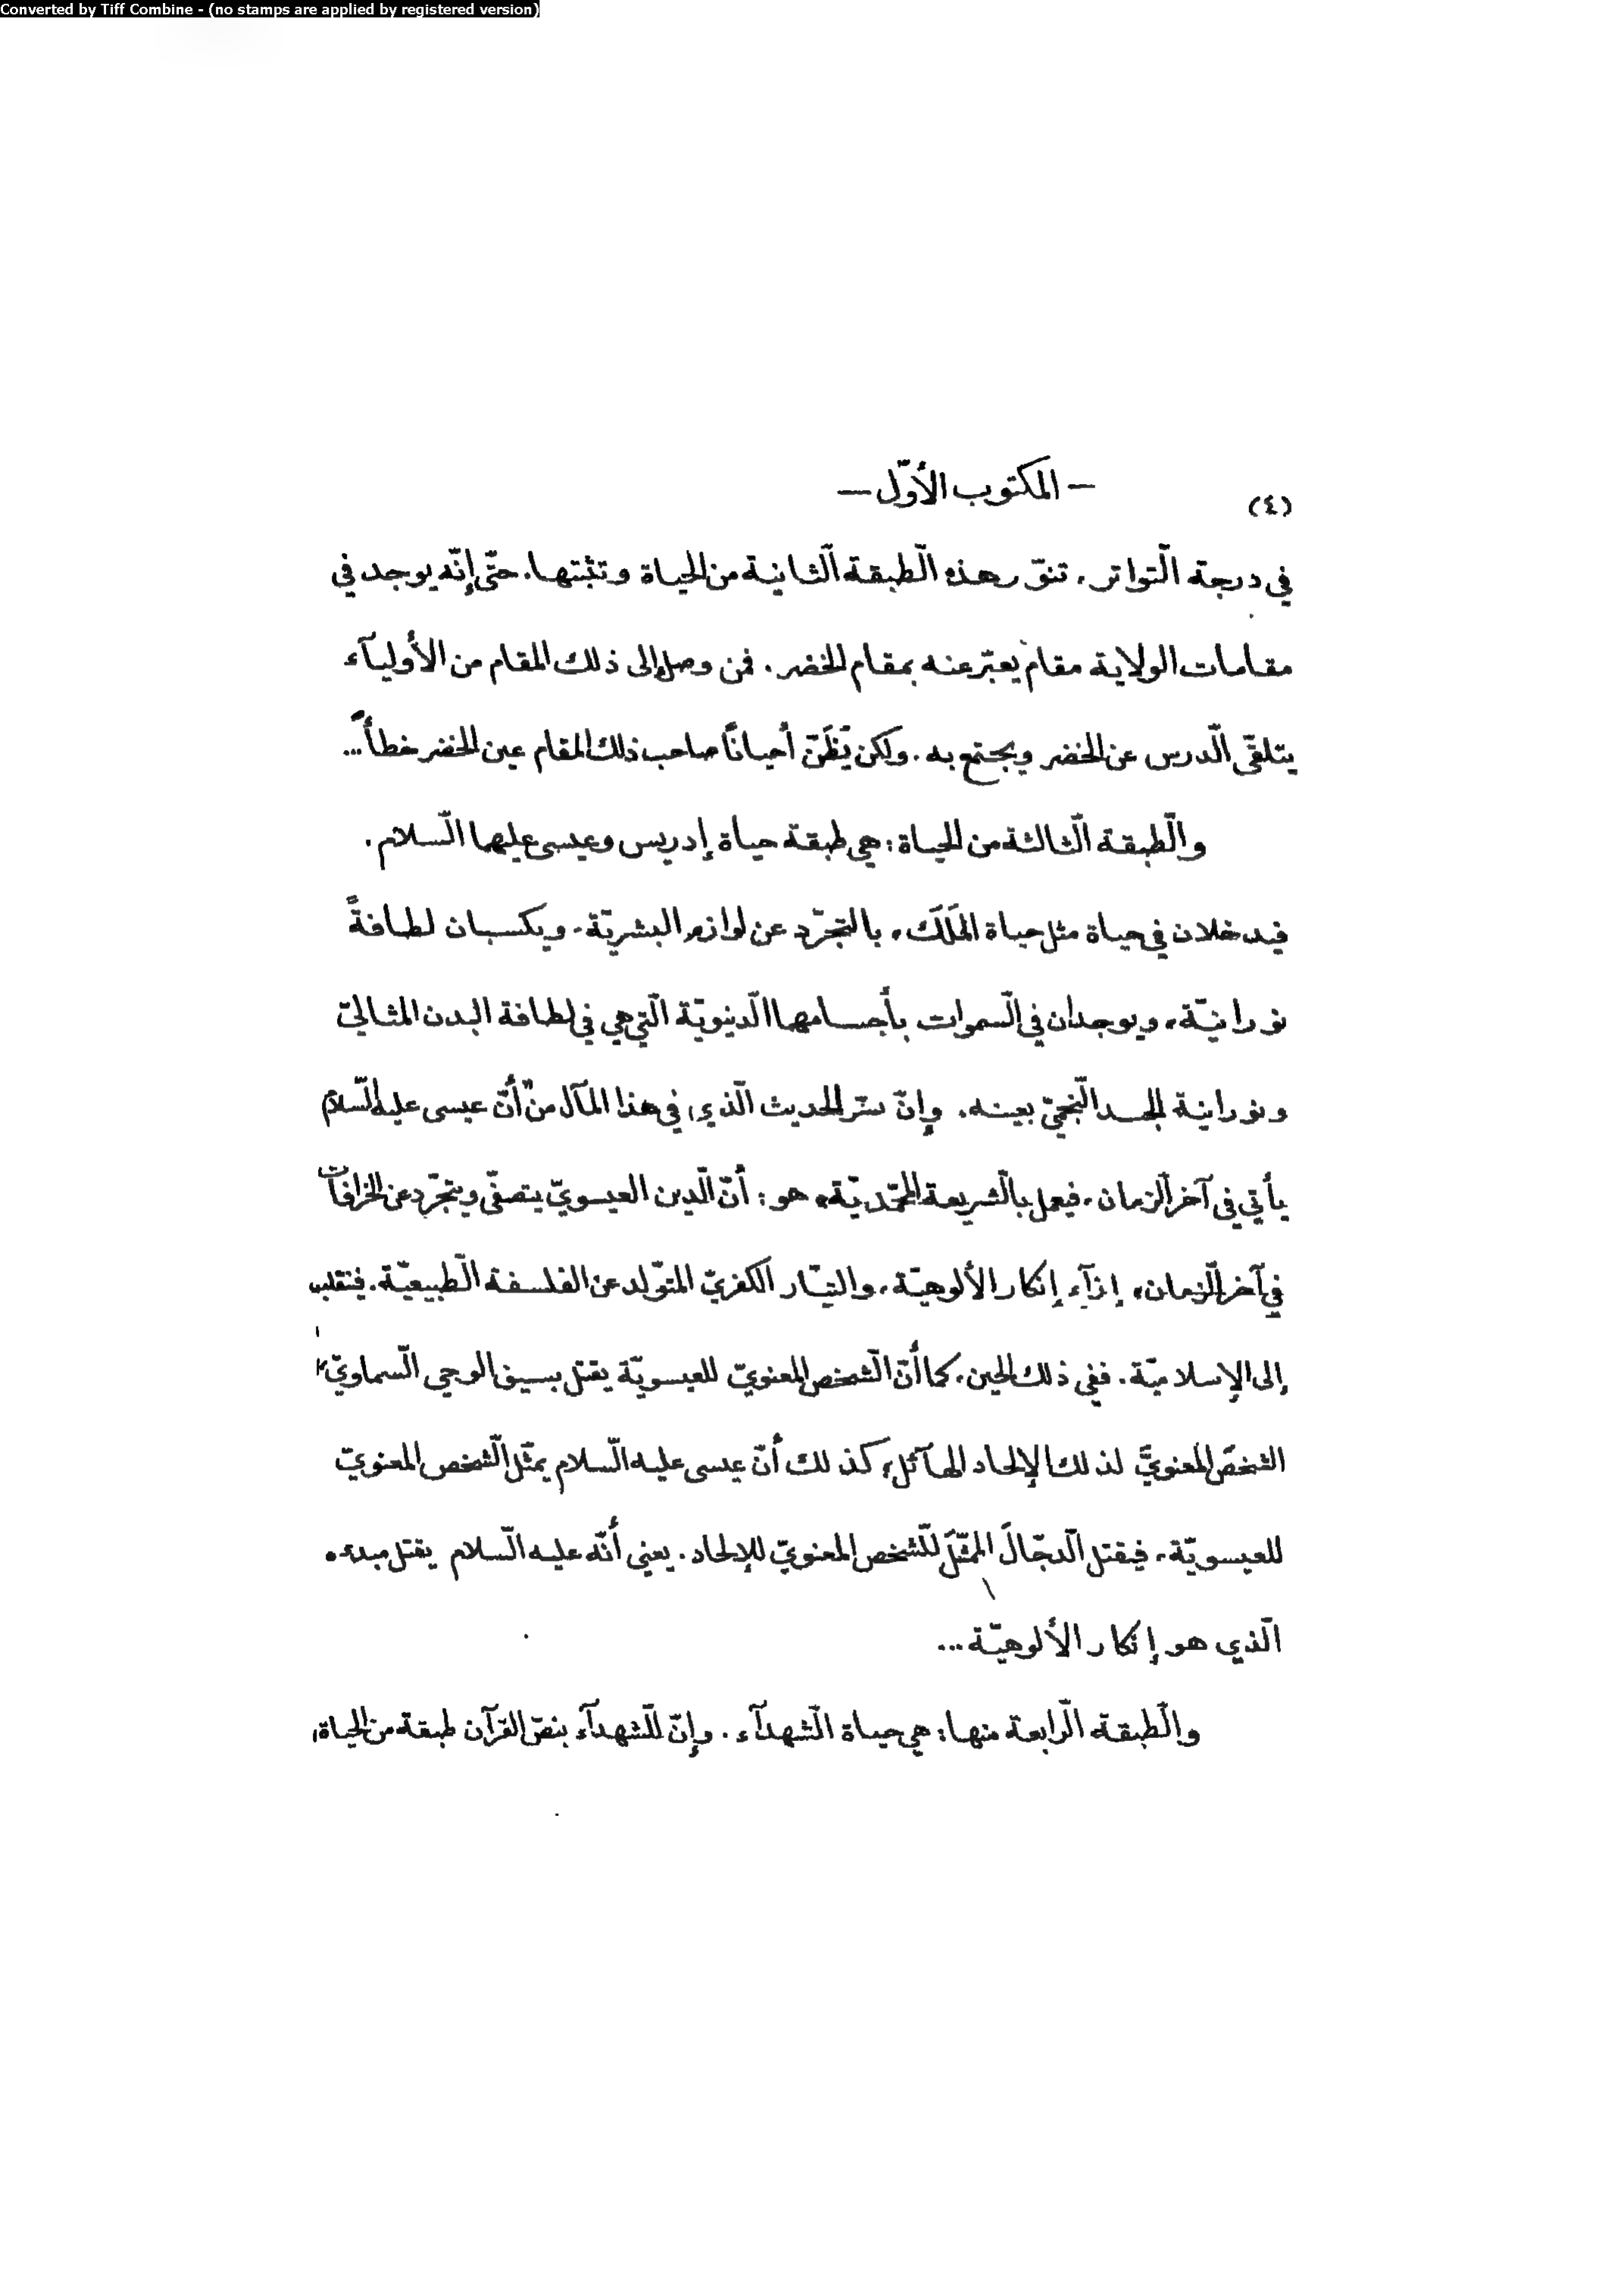 Converted by Tiff Combine - (no stamps are applied by registered version)
— المكتوب الأوّل —
(٤)
في درجة التّواتر، تنوّر هذه الطّبقة الثّانية من الحياة وتثبّتها. حتّى إنّه يوجد في
مقامات الولاية مقام يعبّر عنه بمقام الخضر. فمن وصل إلى ذلك المقام من الأوليآء
يتلقّى الدّرس عن الخضر ويجتمع به. ولكن يُظَنّ أحيانًا صاحب ذلك المقام عين الخضر خطأً...
والطّبقة الثّالثة من الحياة: هي طبقة حياة إدريس وعيسى عليهما السّلام.
فيدخلان في حياة مثل حياة المَلَك، بالتّجرّد عن لوازم البشريّة. ويكسبان لطافةً
نورانيّة، ويوجدان في السّموات بأجسامهما الدّنيويّة الّتي هي في لطافة البدن المثاليّ
ونورانية الجسد النّجميّ بعينه. وإنّ سرّ الحديث الّذي في هذا المآل من أنّ عيسى عليه السّلام
يأتي في آخر الزّمان، فيعمل بالشّريعة المحمّديّة، هو: أنّ الدّين العيسويّ يتصفّى ويتجرّد عن الخرافات
في آخر الزّمان، إزآء إنكار الألوهيّة، والتيّار الكفريّ المتولّد عن الفلسفة الطّبيعيّة. فينقلب
إلى الإسلاميّة. ففي ذلك الحين، كما أنّ الشّخص المعنويّ للعيسويّة يقتل بسيف الوحي السّماويّ
الشخصَ المعنويَّ لذلك الإلحاد الهآئل؛ كذلك أنّ عيسى عليه السّلام يمثّل الشّخص المعنويّ
للعيسويّة، فيقتل الدّجّالَ الممثّلَ للشّخص المعنويّ للإلحاد. يعني أنّه عليه السّلام يقتل مبدءه
الّذي هو إنكار الألوهيّة...
والطّبقة الرّابعة منها: هي حياة الشّهدآء. وإنّ للشّهدآء بنصّ القرآن طبقة من الحياة،